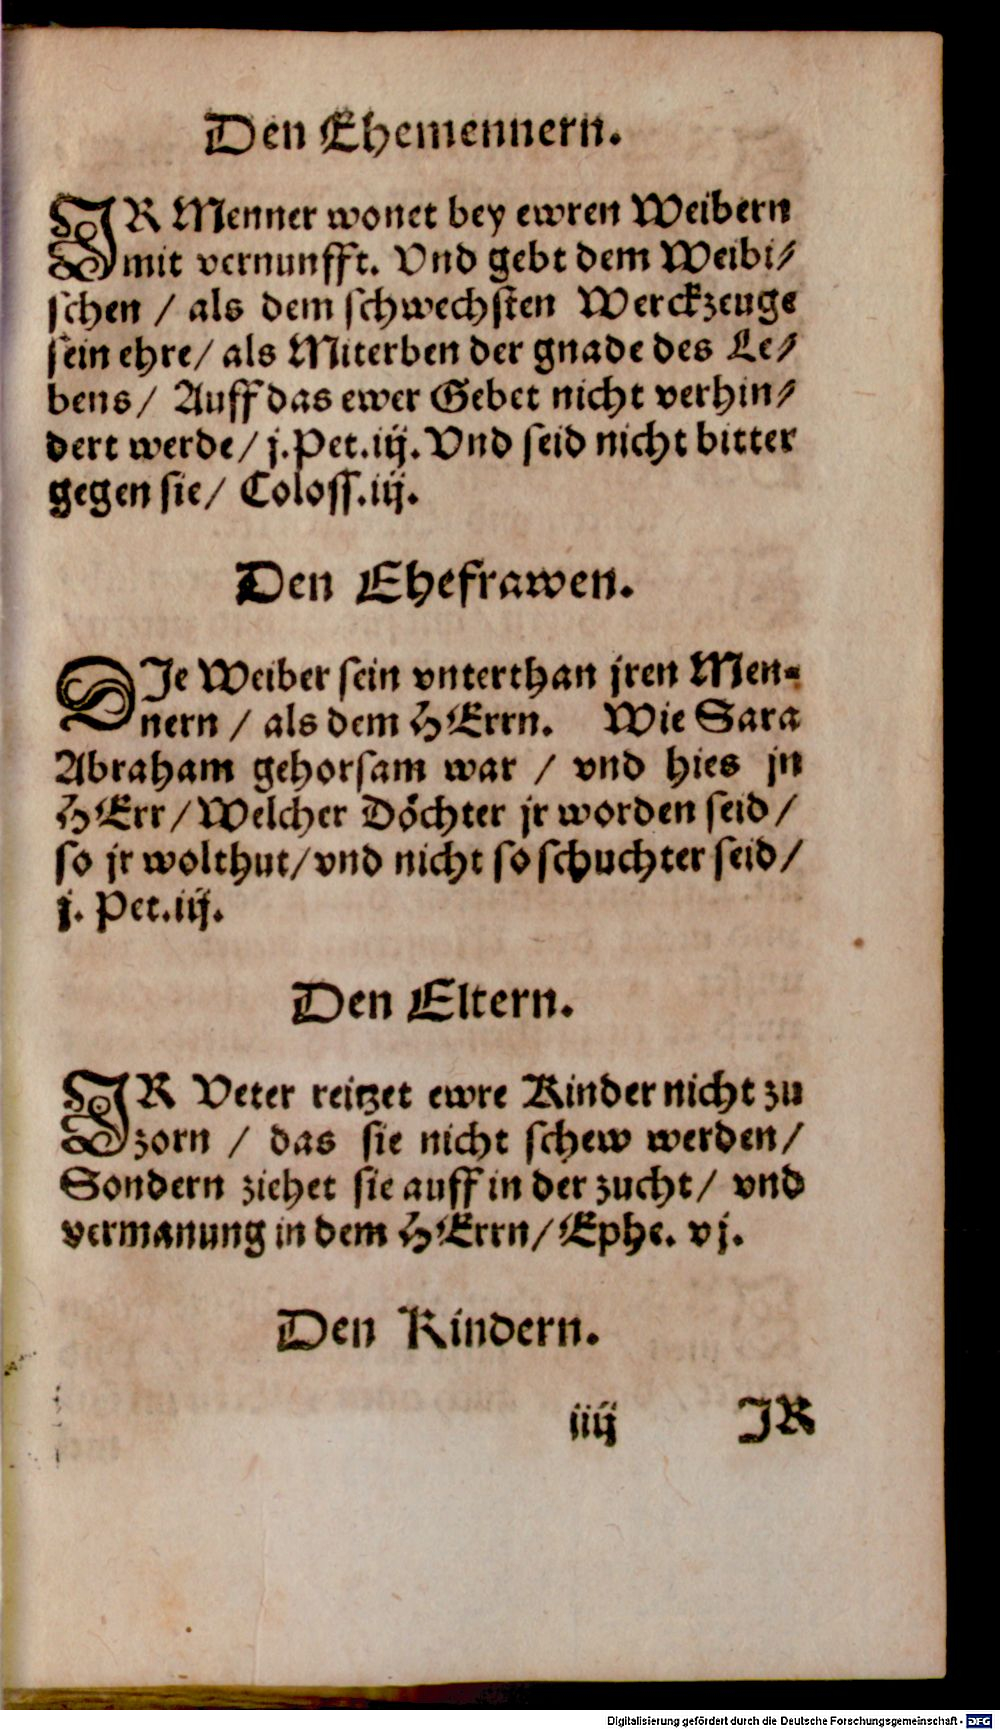 Den Ehemennern.
IR Menner wonet bey ewren Weibern
mit vernunfft. Vnd gebt dem Weibi⸗
schen / als dem schwechsten Werckzeuge
sein ehre/ als Miterben der gnade des Le⸗
bens/ Auff das ewer Gebet nicht verhin⸗
dert werde/ j.Pet.iij. Vnd seid nicht bitter
gegen sie/ Coloss.iij.
Den Ehefrawen.
DIe Weiber sein vnterthan jren Men⸗
nern / als dem HErrn. Wie Sara
Abraham gehorsam war / vnd hies jn
HErr/ Welcher Döchter jr worden seid/
so jr wolthut/ vnd nicht so schuchter seid/
j. Pet.iij.
Den Eltern.
IR Veter reitzet ewre Kinder nicht zu
zorn / das sie nicht schew werden/
Sondern ziehet sie auff in der zucht/ vnd
vermanung in dem HErrn/ Ephe. vj.
Den Kindern.
iiij IR
Digitalisierung gefördert durch die Deutsche Forschungsgemeinschaft - DFG